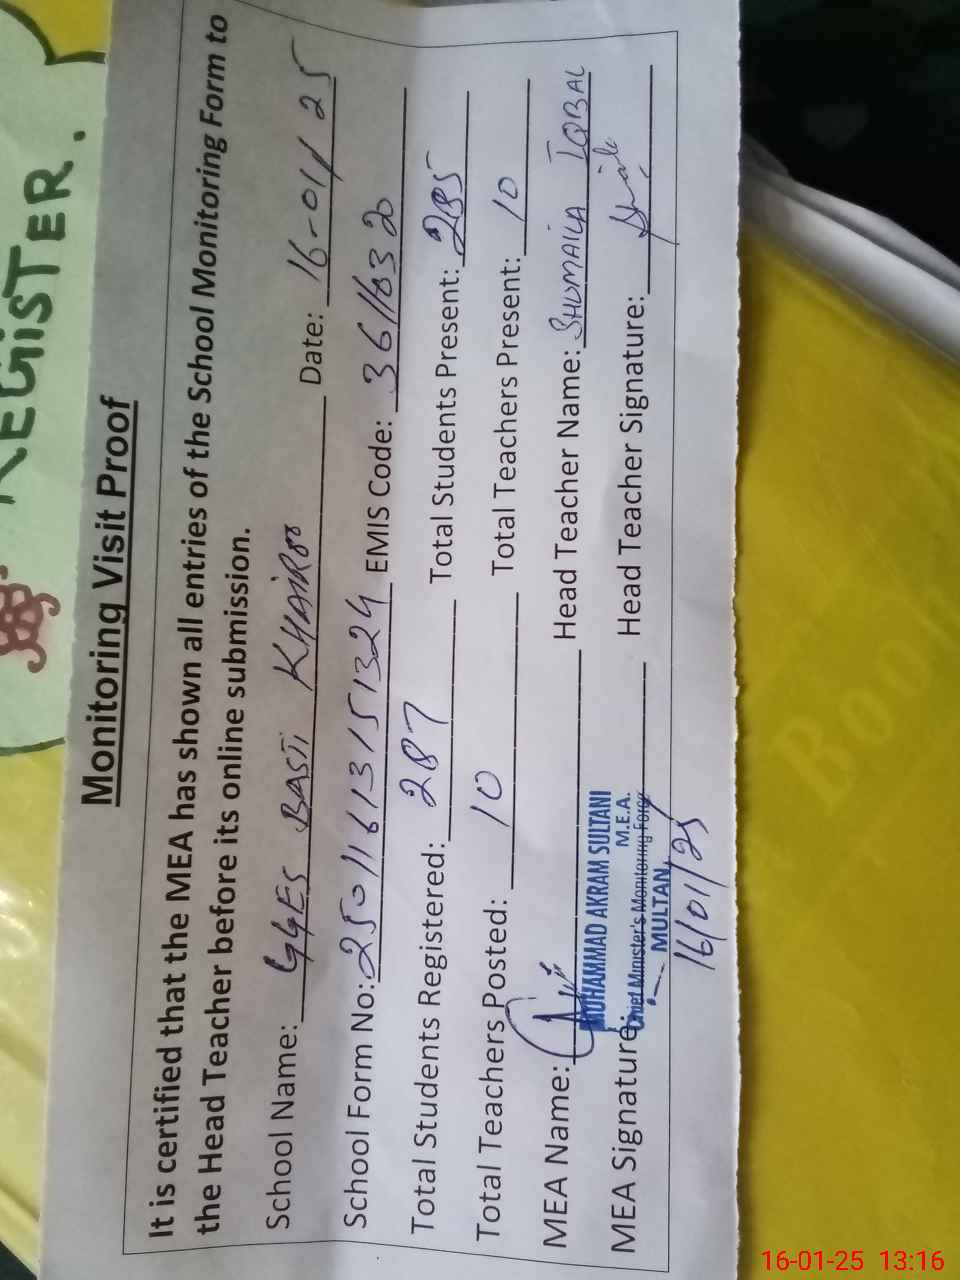 REGiSTER.
Monitoring Visit Proof
It is certified that the MEA has shown all entries of the School Monitoring Form to
the Head Teacher before its online submission.
School Name: GGES BASTI KHAIROO Date: 16-01/25
School Form No: 25011613151324 EMIS Code: 36111832
Total Students Registered: 287 Total Students Present: 285
Total Teachers Posted: 10 Total Teachers Present: 10
MEA Name: Head Teacher Name: SHUMAILA IQBAL
MUHAMMAD AKRAM SULTANI
M.E.A.
MEA Signature: Head Teacher Signature:
Chief Minister's Monitoring Force
MULTAN
16/01/25
Book
16-01-25 13:16